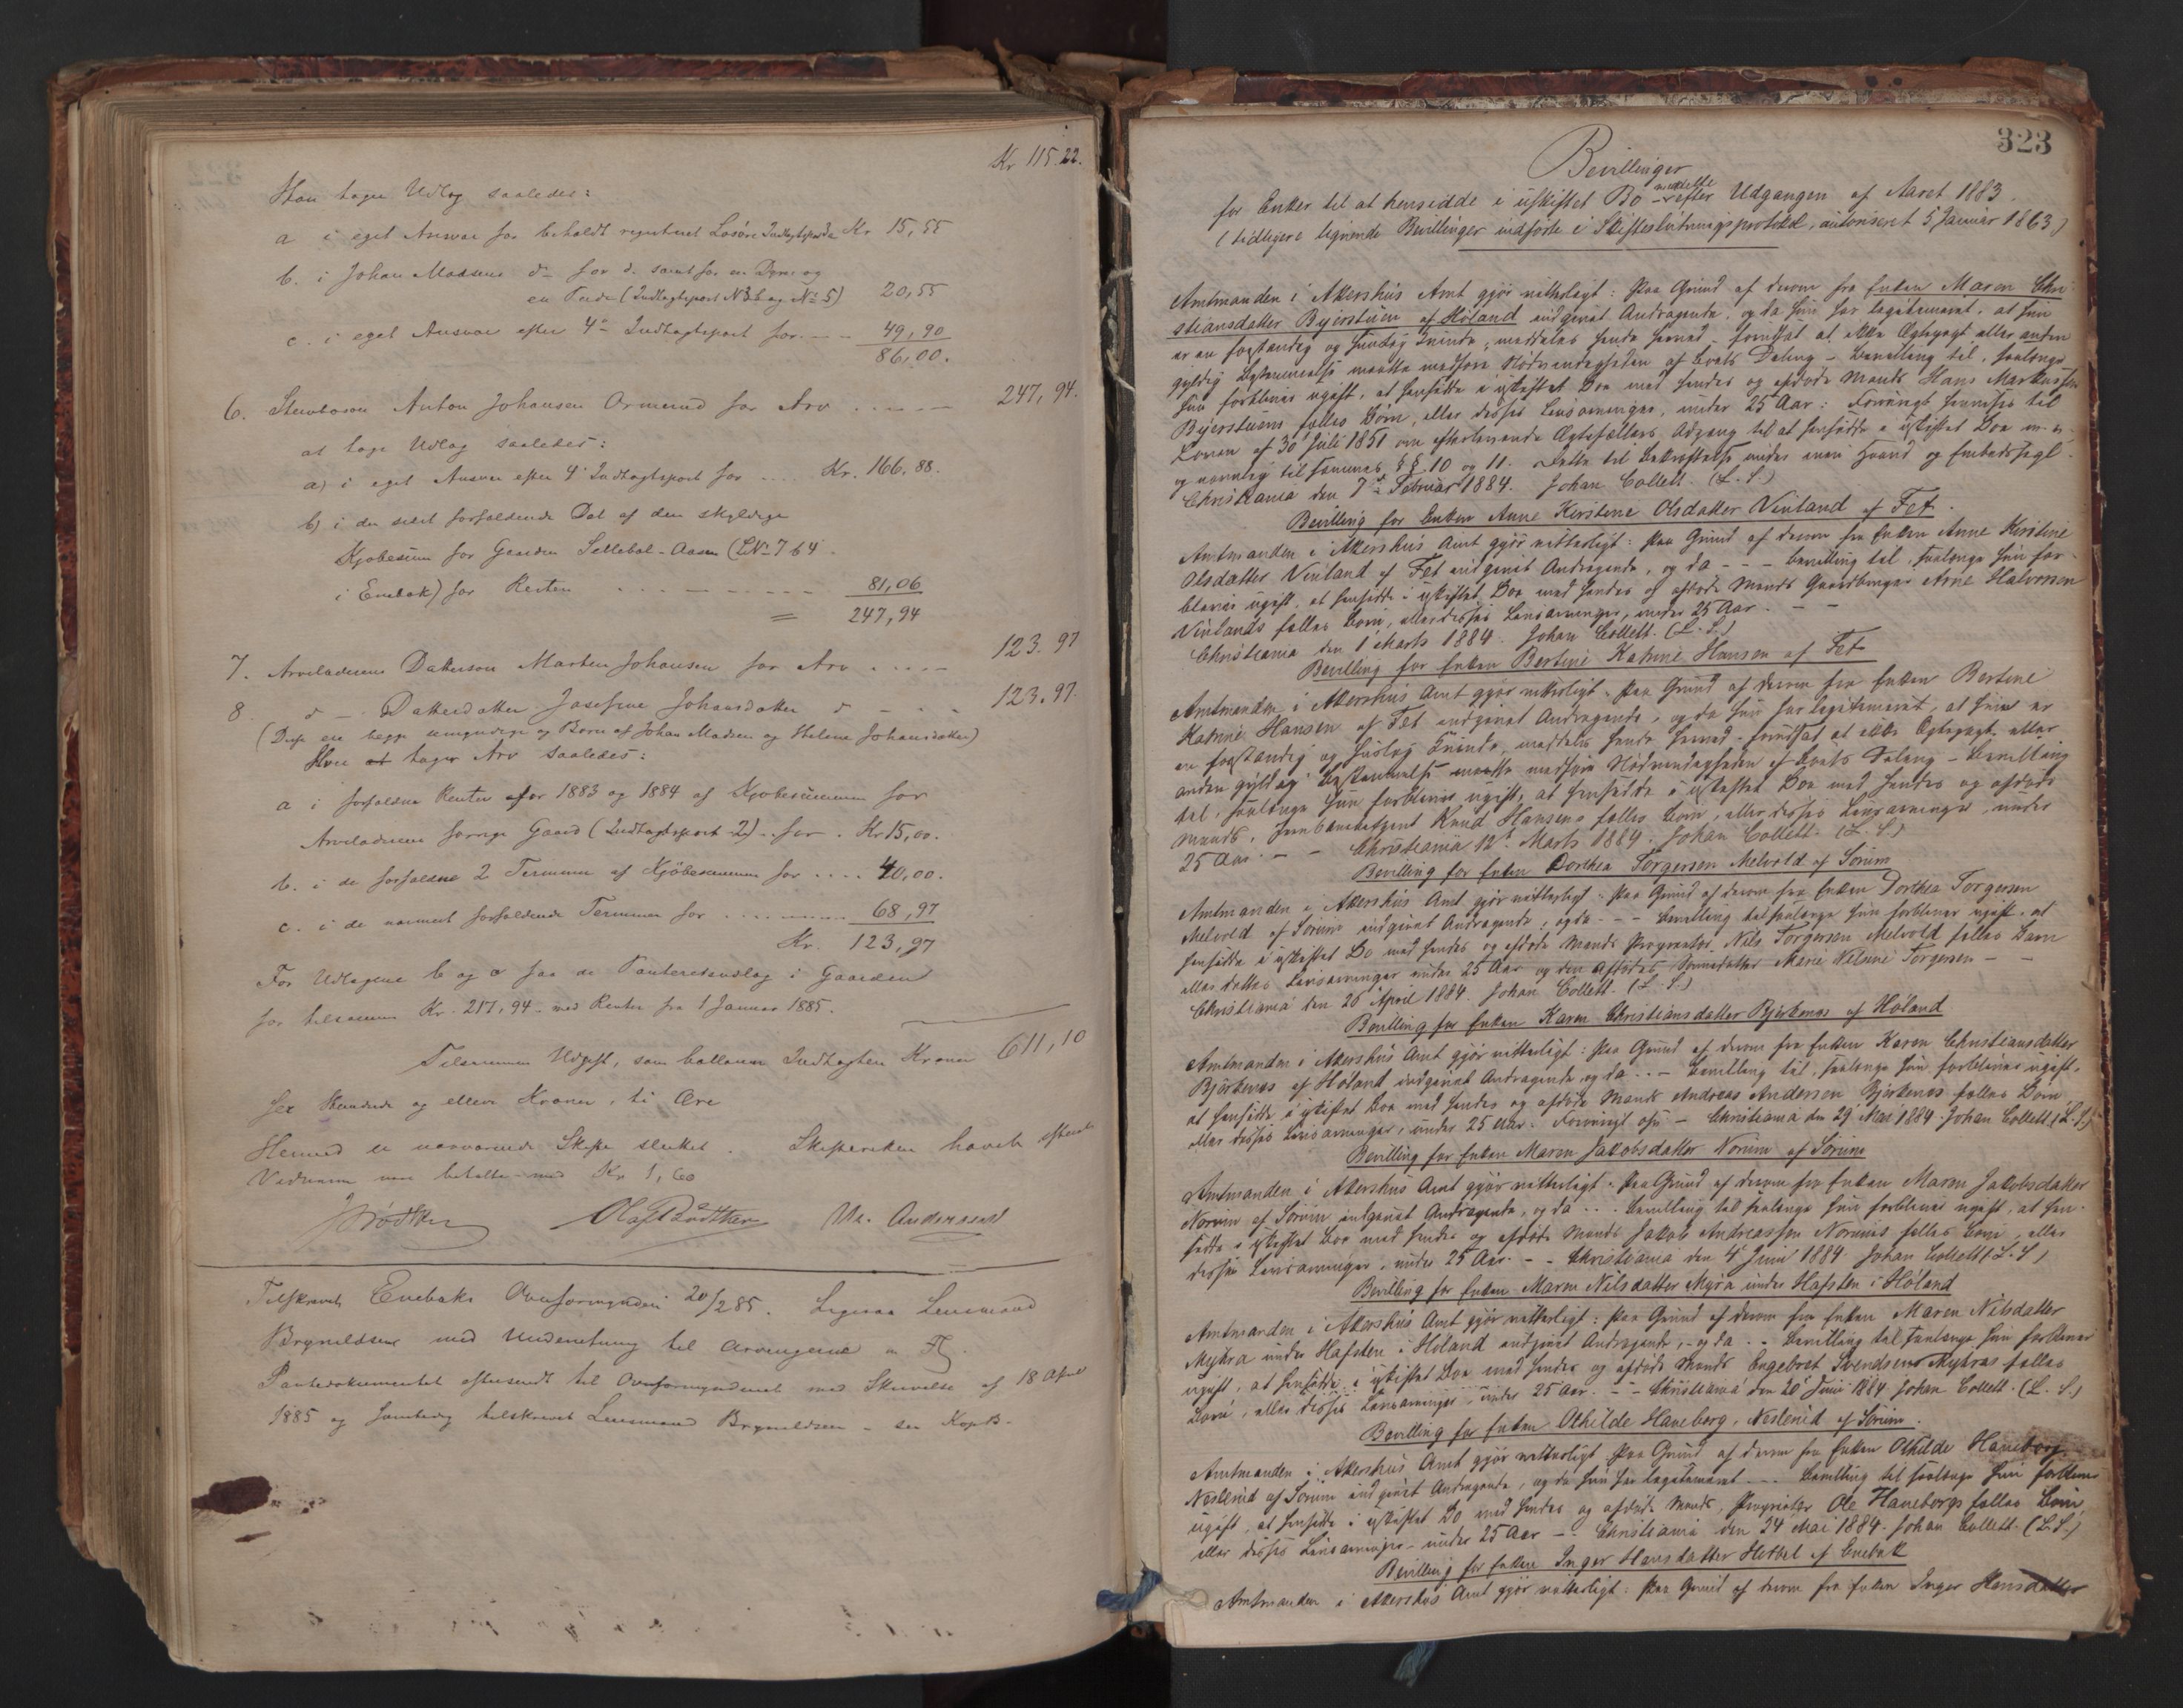 Kr 115.22.
Han tager Udlæg saaledes:
a i eget Ansvar for beholdt registreret Løsøre Indtægtspost Kr 15,55
b. i Johan Madsens do for d. samt for en Dyne og
en Pude (Indtægtspost No 3 b og No 5) 20,55
c. i eget Ansvar efter 4de Indtægtspost for - - - 49,90
86,00.
6. Anton Johansen Ormerud for Arv - - - - 247,94.
at tage Udlæg saaledes:
a) i eget Ansvar efter 4de Indtægtspost for .... Kr. 166.88.
b) i den sidst forfaldende Del af den skyldige
Kjøbesum for Gaarden Sellebøl-Aasen (LNo 764
i Enebak) for Resten - - - - - 81,06
= 247,94
7. Arveladerens Dattersøn Marten Johansen for Arv - - - - 123.97
8. d - Datterdatter Josefine Johansdatter d - - - 123.97.
(Disse ere begge umyndige og Børn af Johan Madsen og Helene Johansdatter)
Hver tager Arv saaledes:
a i forfaldne Renter for 1883 og 1884 af Kjøbesummen for
Arveladerens forrige Gaard (Indtægtspost 2) for . Kr 15,00.
b. i de forfaldne 2 Terminer af Kjøbesummen for .... 40,00.
c. i de nærmest forfaldende Terminer for ........ 68,97
Kr. 123,97
For Udlægene b og c faa de Panteretsudlæg i Gaarden
for tilsammen Kr. 217,94 - med Renter fra 1 Januar 1885.
Tilsammen Udgift, som ballancerer Indtægten Kroner 611,10
sex Hundrede og elleve Kroner, ti Øre
Hermed er nærværende Skifte sluttet. Skifteretten havde
Vidnerne betalte med Kr 1,60
Olaf Bødtker M. Andersen
Tilskrevet Enebaks Overformynderi 20/2 85. Ligesaa Lensmand
Brynildsen med Underretning til Arvingerne
Pantedokumentet oversendt til Overformynderiet med Skrivelse af 18 April
1885 og samtidig tilskrevet Lensmand Brynildsen - se Kop.B.
323
Bevillinger
for Enker til at hensidde i uskiftet Bo meddelte efter Udgangen af Aaret 1883.
(tidligere lignende Bevillinger indførte i Skifteslutningsprotokol, autoriseret 5 Januar 1863)
Amtmanden i Akershus Amt gjør vitterligt: Paa Grund af derom fra Enken Maren Chri-
stiansdatter Bjerstuen af Høland indgivet Andragende, og da hun har legitimeret, at hun
er en forstandig og huuslig Kvinde, meddeles hende herved - forudsat at ikke Ægtepagt eller anden
gyldig Bestemmelse maatte medføre Nødvendigheden af Boets Deling - Bevilling til, saalænge
hun forbliver ugift, at hensidde i uskiftet Bo med hendes og afdøde Mands Hans Markussen
Bjerstuens fælles Børn, eller disses Livsarvinger, under 25 Aar: Forøvrigt henvises til
Loven af 30 Juli 1851 om efterlevende Ægtefællers Adgang til at hensidde i uskiftet Bo m.m.
og navnlig til sammes §§. 10 og 11. Dette til Bekræftelse under min Haand og Embedssegl.
Christiania den 7de Februar 1884. Johan Collett. (L.S.)
Bevilling for Enken Anne Kirstine Olsdatter Vinland af Fet.
Amtmanden i Akershus Amt gjør vitterligt: Paa Grund af derom fra Enken Anne Kirstine
Olsdatter Vinland af Fet indgivet Andragende, og da - - - Bevilling til, saalænge hun for-
bliver ugift, at hensidde i uskiftet Bo med hendes og afdøde Mands Gaardbruger Arne Halvorsen
Vinlands fælles Børn, eller disses Livsarvinger, under 25 Aar. - -
Christiania den 1 Marts 1884. Johan Collett. (L.S.)
Bevilling for Enken Bertine Katrine Hansen af Fet
Amtmanden i Akershus Amt gjør vitterligt: Paa Grund af derom fra Enken Bertine
Katrine Hansen af Fet indgivet Andragende, og da hun har legitimeret, at hun er
en forstandig og huslig Kvinde, meddeles hende herved - forudsat at ikke Ægtepagt eller
anden gyldig Bestemmelse maatte medføre Nødvendigheden af Boets Deling - Bevilling
til, saalænge hun forbliver ugift, at hensidde i uskiftet Bo med hendes og afdøde
Mands, Knud Hansens fælles Børn, eller disses Livsarvinger, under
25 Aar. - - Christiania 12te Marts 1884. Johan Collett. (L.S.)
Bevilling for Enken Dorthea Torgersen Melvold af Sørum
Amtmanden i Akershus Amt gjør vitterligt: Paa Grund af derom fra Enken Dorthea Torgersen
Melvold af Sørum indgivet Andragende, og da - - - Bevilling til saalænge hun forbliver ugift, at
hensidde i uskiftet Bo med hendes og afdøde Mands Proprietær Nils Torgersen Melvold fælles Barn
eller dettes Livsarvinger under 25 Aar og den Afdødes Sønnedatter Marie Nilsine Torgersen - -
Christiania den 26 April 1884. Johan Collett. (L.S.)
Bevilling for Enken Karen Christiansdatter Bjerkenes af Høland
Amtmanden i Akershus Amt gjør vitterligt: Paa Grund af derom fra Enken Karen Christiansdatter
Bjerkenes af Høland indgivet Andragende, og da . . - Bevilling til, saalænge hun forbliver ugift,
at hensidde i uskiftet Bo med hendes og afdøde Mands Andreas Andersen Bjerkenes fælles Børn
eller disses Livsarvinger, under 25 Aar. Forøvrigt osv. - Christiania den 29 Mai 1884. Johan Collett (L.S.)
Bevilling for Enken Maren Jakobsdatter Norum af Sørum
Amtmanden i Akershus Amt gjør vitterligt: Paa Grund af derom fra Enken Maren Jakobsdatter
Norum af Sørum indgivet Andragende, og da . . . Bevilling til saalænge hun forbliver ugift, at hen-
sidde i uskiftet Bo med hendes og afdøde Mands Jakob Andreassen Norums fælles Børn, eller
disses Livsarvinger, under 25 Aar. - - Christiania den 4de Juni 1884. Johan Collett (L.S)
Bevilling for Enken Maren Nilsdatter Myra under Hafsten i Høland
Amtmanden i Akershus Amt gjør vitterligt: Paa Grund af derom fra Enken Maren Nilsdatter
Myhra under Hafsten i Høland indgivet Andragende, - og da . - Bevilling til saalænge hun forbliver
ugift, at hensidde i uskiftet Bo med hendes og afdøde Mands Engebret Svendsens Myhras fælles
Børn, eller disses Livsarvinger, under 25 Aar. - - Christiania den 20 Juni 1884 Johan Collett. (L.S.)
Bevilling for Enken Othilde Haneborg, Neslerud af Sørum.
Amtmanden i Akershus Amt gjør vitterligt Paa Grund af derom fra Enken Othilde Haneborg
Neslerud af Sørum indgivet Andragende, og da hun har legitimeret - - - Bevilling til saalænge hun forbliver
ugift, at hensidde i uskiftet Bo med hendes og afdøde Mands, Proprietær Ole Haneborgs fælles Børn,
eller disses Livsarvinger - under 25 Aar - - Christiania den 24 Mai 1884. Johan Collett. (L.S.)
Bevilling for Enken Inger Hansdatter Hetbel af Enebak
Amtmanden i Akershus Amt gjør vitterligt: Paa Grund af derom fra Enken Inger Hansdatter